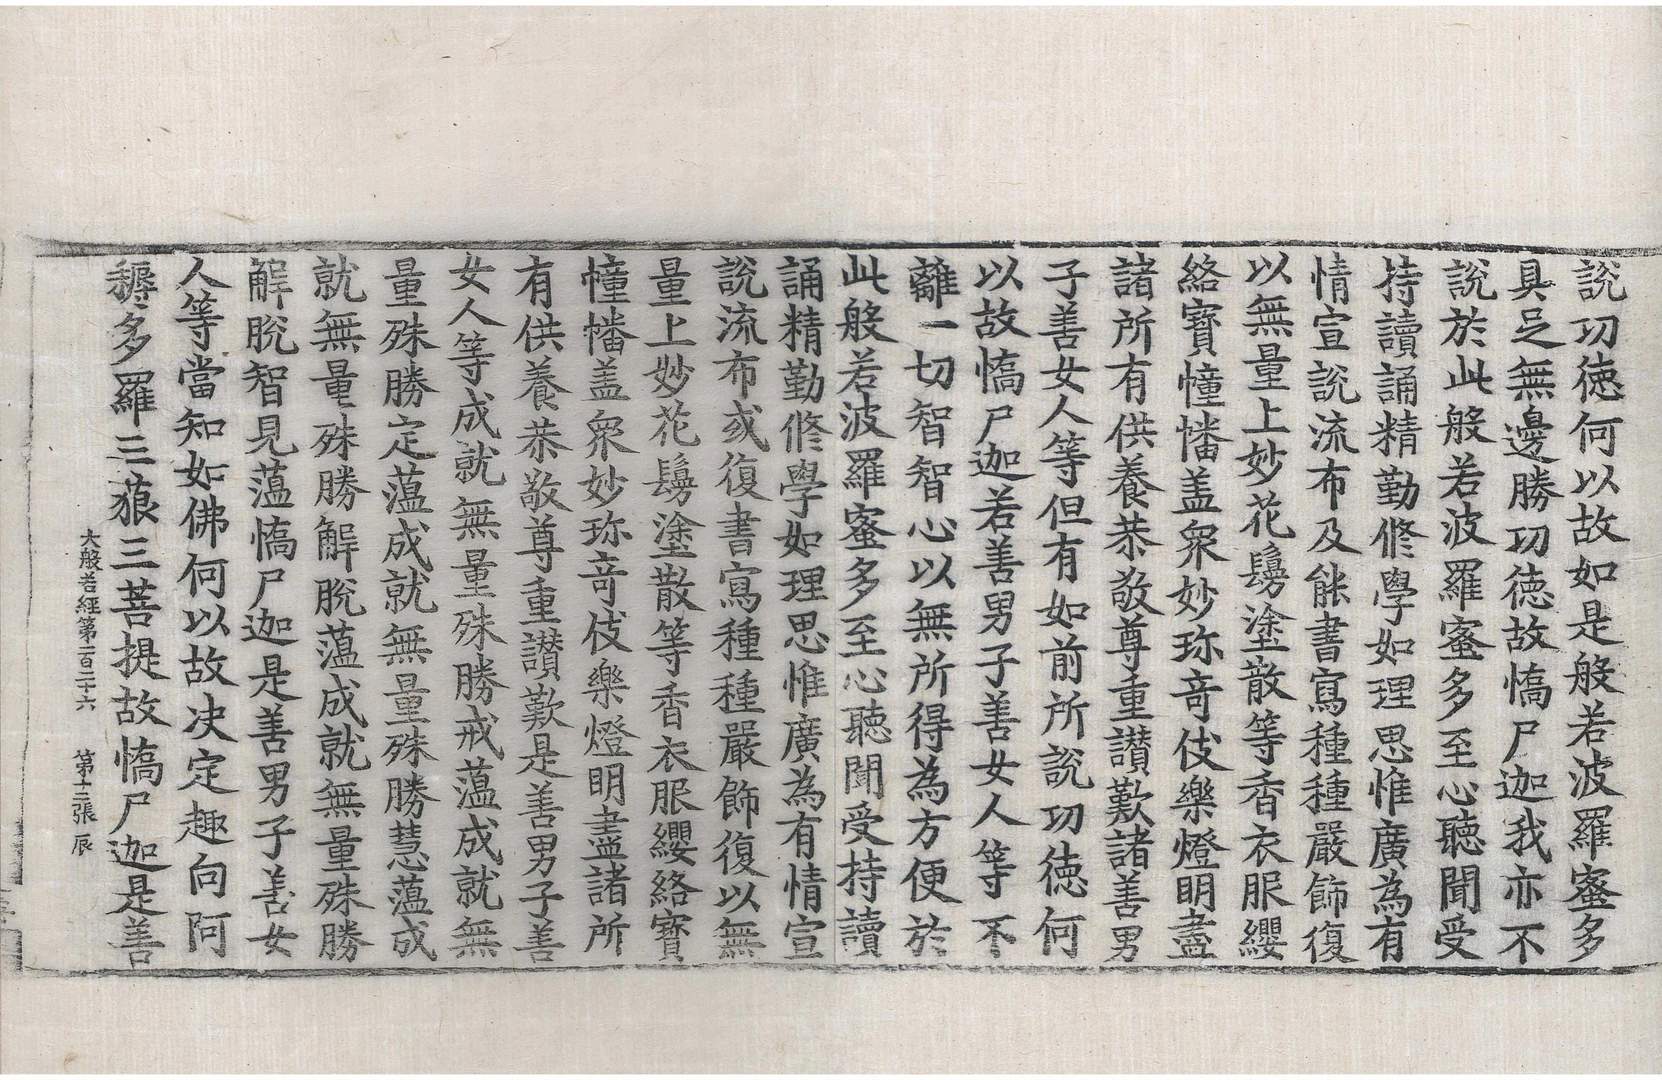 說功徳何以故如是般若波羅蜜多
具足無邊勝功徳故憍尸迦我亦不
說於此般若波羅蜜多至心聽聞受
持讀誦精勤修學如理思惟廣為有
情宣說流布及能書寫種種嚴飾復
以無量上妙花鬘塗散等香衣服纓
絡寶幢幡盖衆妙珎竒伎樂燈明盡
諸所有供養恭敬尊重讃歎諸善男
子善女人等但有如前所說功徳何
以故憍尸迦若善男子善女人等不
離一切智智心以無所得為方便於
此般若波羅蜜多至心聽聞受持讀
誦精勤修學如理思惟廣為有情宣
說流布或復書寫種種嚴飾復以無
量上妙花鬘塗散等香衣服纓絡寶
幢幡盖衆妙珎竒伎樂燈明盡諸所
有供養恭敬尊重讃歎是善男子善
女人等成就無量殊勝戒薀成就無
量殊勝定薀成就無量殊勝慧薀成
就無量殊勝解脫薀成就無量殊勝
解脫智見薀憍尸迦是善男子善女
人等當知如佛何以故决定趣向阿
耨多羅三藐三菩提故憍尸迦是善
大般若經第一百二十六 第十二張 辰